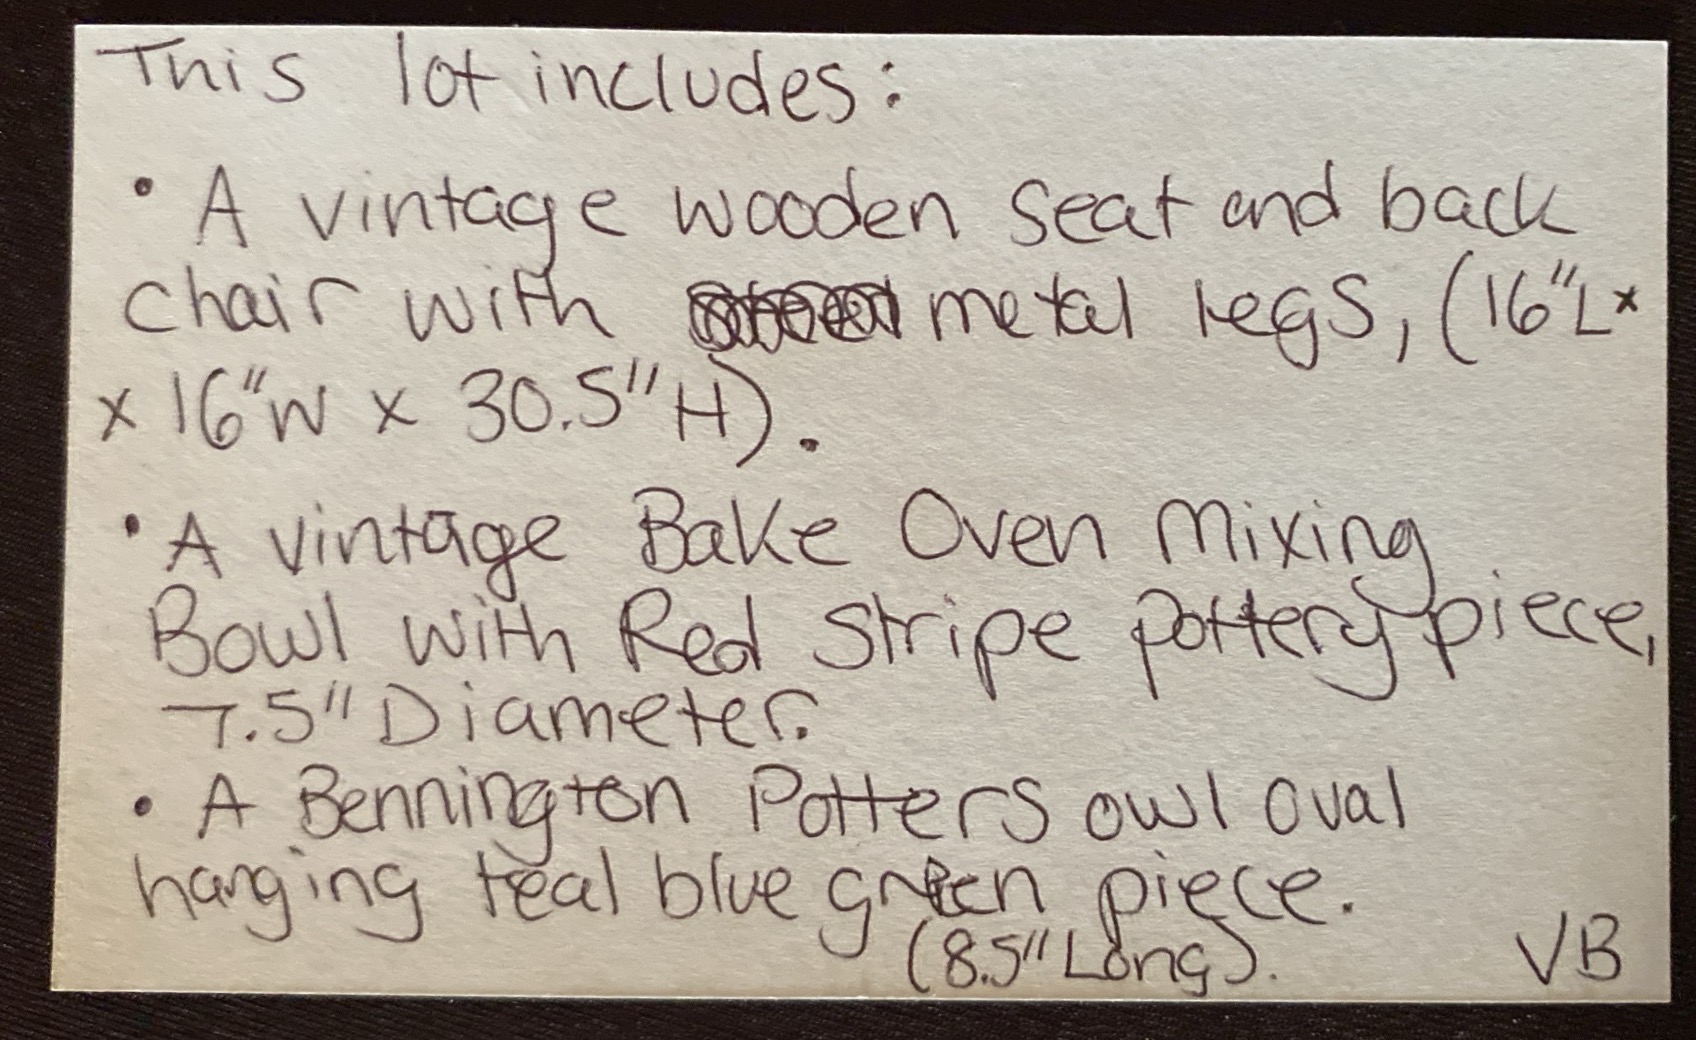 This lot includes:
• A vintage wooden seat and back
chair with metal legs, (16"L x
x 16"W x 30.5"H).
• A vintage Bake Oven Mixing
Bowl with Red Stripe pottery piece,
7.5" Diameter.
• A Bennington Potters owl oval
hanging teal blue green piece.
(8.5" Long).
VB